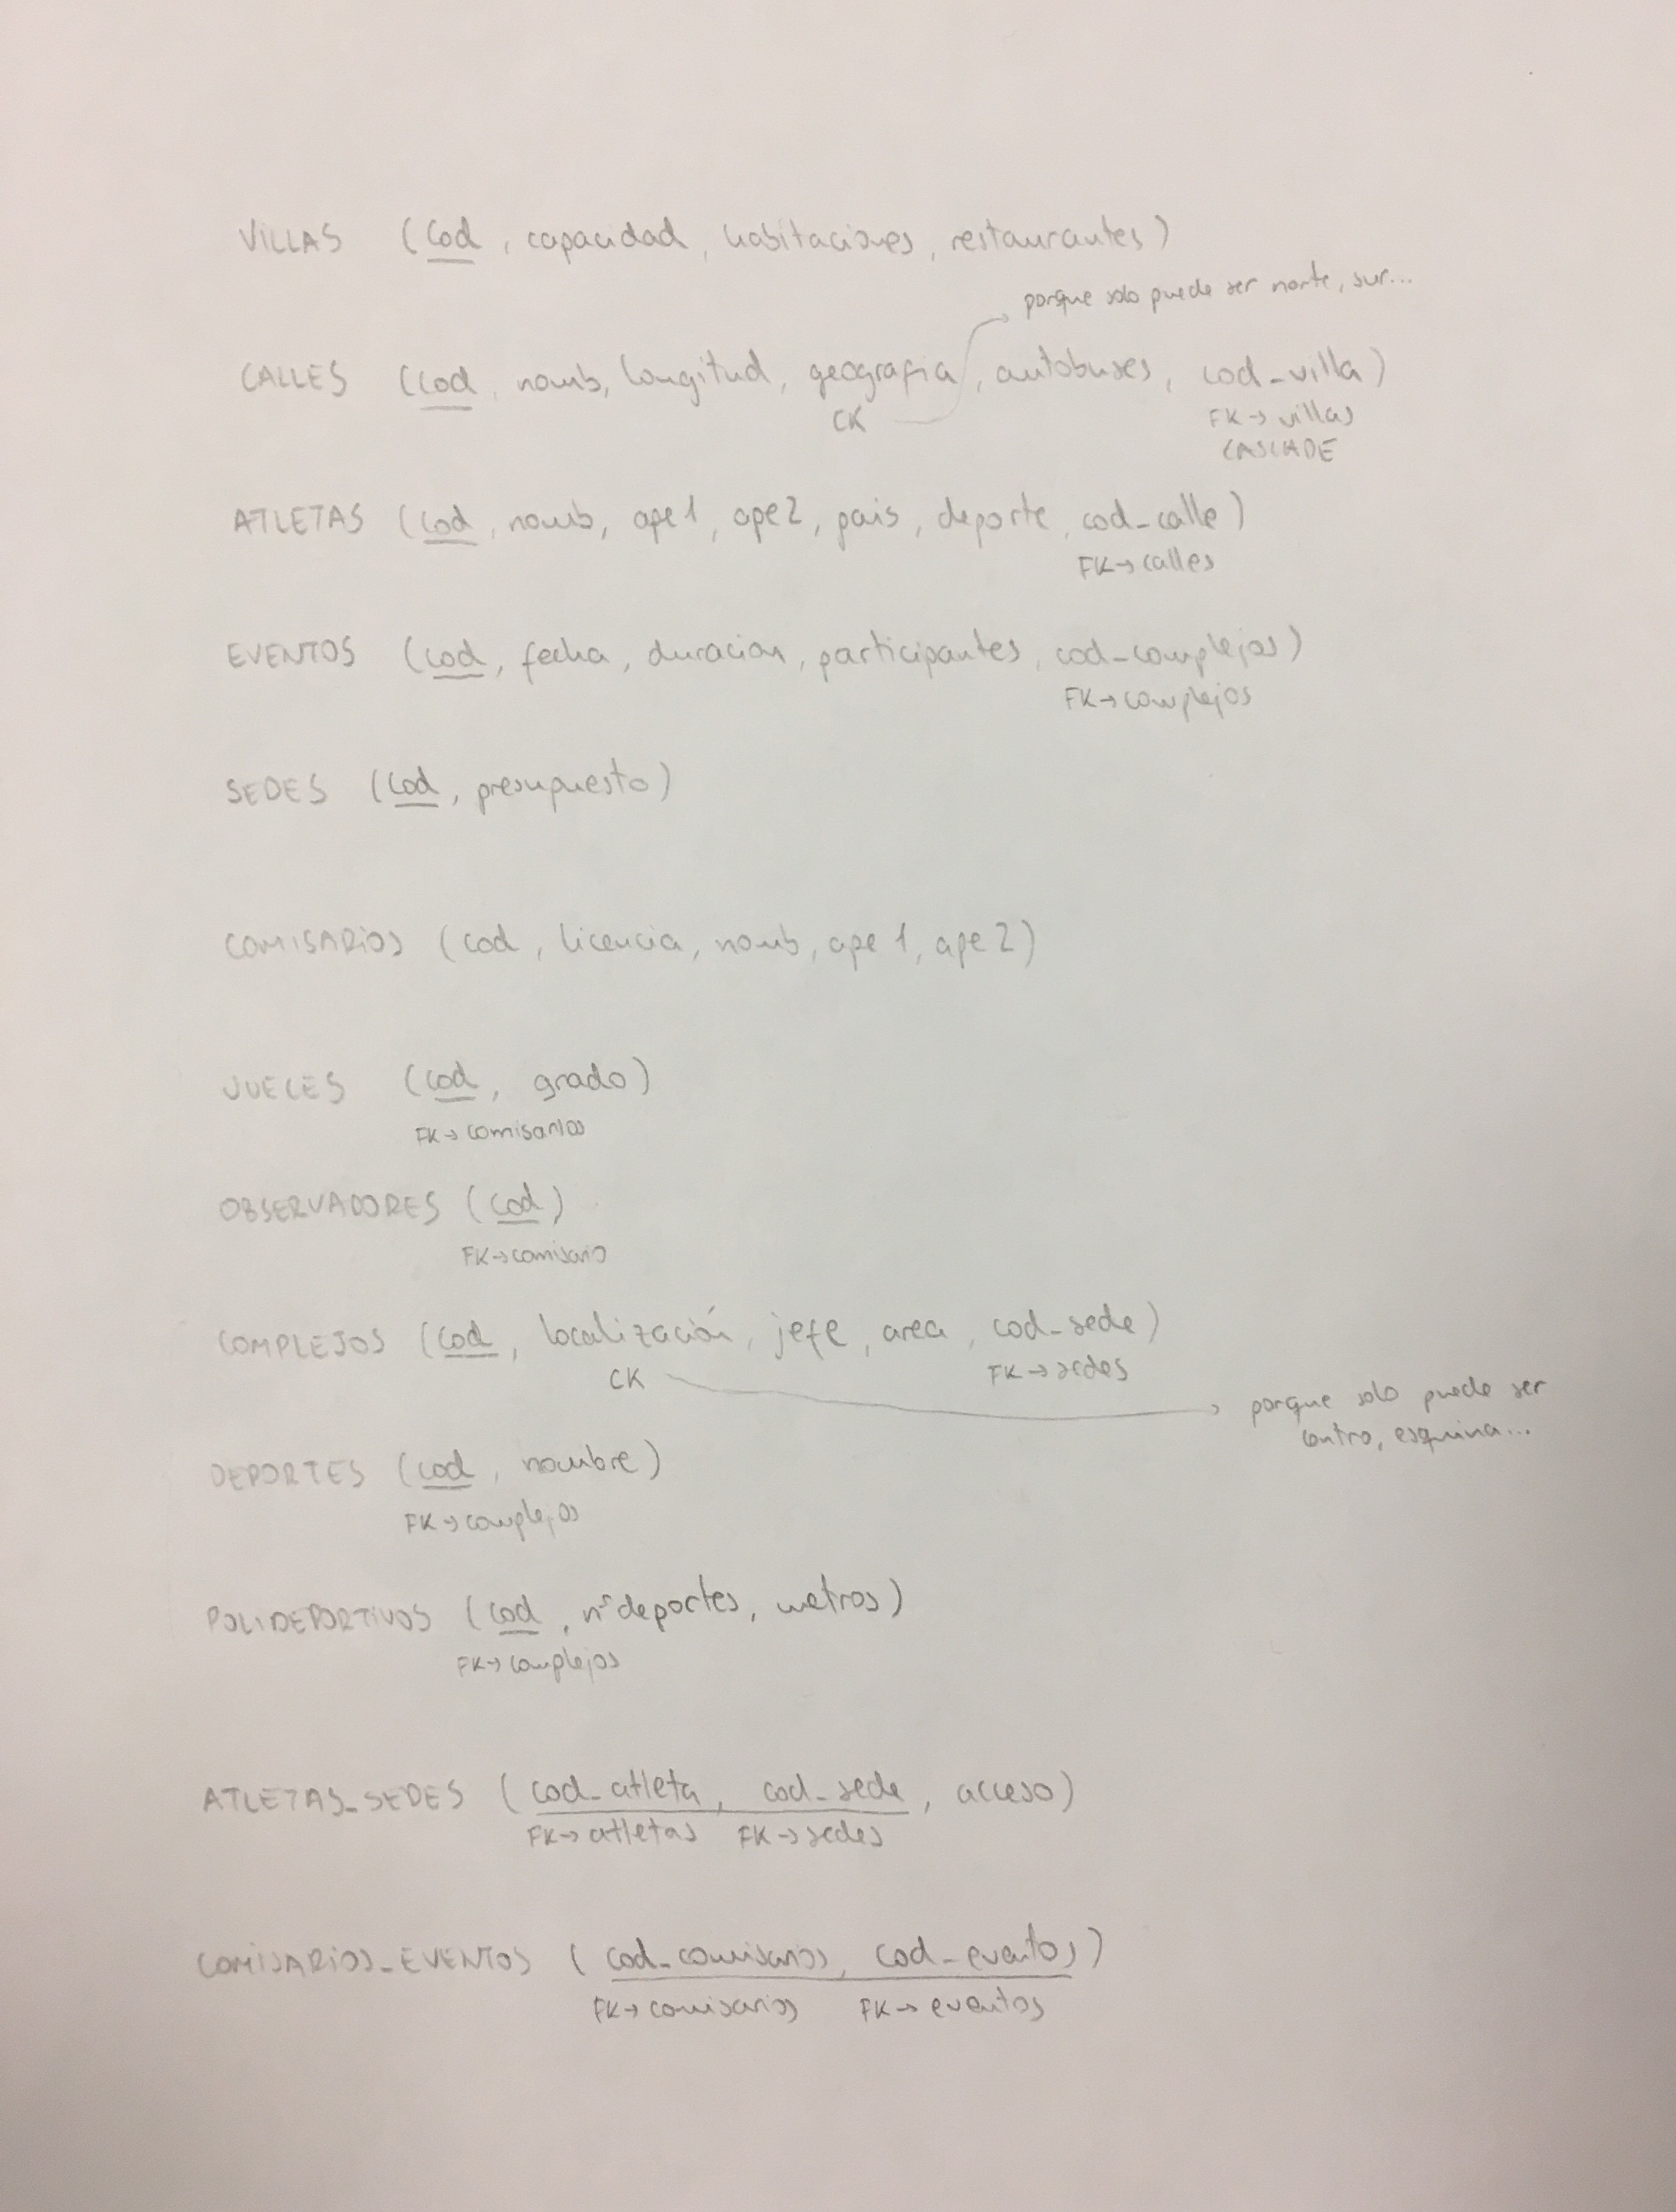 VILLAS (cod, capacidad, habitaciones, restaurantes)
porque solo puede ser norte, sur...
CALLES (cod, nomb, longitud, geografia, autobuses, cod_villa)
CK FK→villas
CASCADE
ATLETAS (cod, nomb, ape1, ape2, pais, deporte, cod_calle)
FK→calles
EVENTOS (cod, fecha, duracion, participantes, cod_complejos)
FK→complejos
SEDES (cod, presupuesto)
COMISARIOS (cod, licencia, nomb, ape1, ape2)
JUECES (cod, grado)
FK→comisarios
OBSERVADORES (cod)
FK→comisario
COMPLEJOS (cod, localización, jefe, area, cod_sede)
CK FK→sedes
porque solo puede ser
centro, esquina...
DEPORTES (cod, nombre)
FK→complejos
POLIDEPORTIVOS (cod, nºdeportes, metros)
FK→complejos
ATLETAS_SEDES (cod_atleta, cod_sede, acceso)
FK→atletas FK→sedes
COMISARIOS_EVENTOS (cod_comisarios, cod_eventos)
FK→comisarios FK→eventos